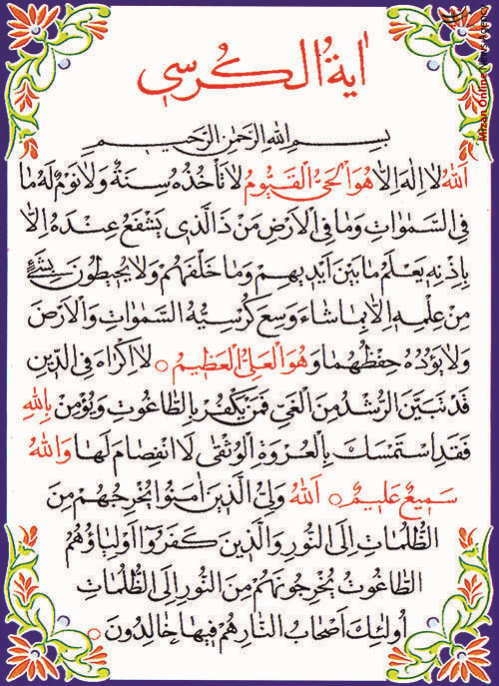 اٰیةُ الکُرسي
بِسْمِ اللهِ الرَّحْمٰنِ الرَّحیمِ
اَللهُ لا اِلهَ اِلاّ هُوَ الْحَیُّ الْقَیُّومُ لا تَأْخُذُهُ سِنَةٌ وَلا نَوْمٌ لَهُ ما
فِی السَّمٰواتِ وَما فِی الْاَرْضِ مَنْ ذَا الَّذی یَشْفَعُ عِنْدَهُ اِلاّ
بِاِذْنِهِ یَعْلَمُ ما بَیْنَ اَیْدیهِمْ وَما خَلْفَهُمْ وَلا یُحیطُونَ بِشَیْءٍ
مِنْ عِلْمِهِ اِلاّ بِما شاءَ وَسِعَ کُرْسِیُّهُ السَّمٰواتِ وَالْاَرْضَ
وَلا یَؤُدُهُ حِفْظُهُما وَهُوَ الْعَلِیُّ الْعَظیمُ ○ لا اِکْراهَ فِی الدّینِ
قَدْ تَبَیَّنَ الرُّشْدُ مِنَ الْغَیِّ فَمَنْ یَکْفُرْ بِالطّاغُوتِ وَیُؤْمِنْ بِاللهِ
فَقَدِ اسْتَمْسَكَ بِالْعُرْوَةِ الْوُثْقٰی لَا انْفِصامَ لَها وَاللهُ
سَمیعٌ عَلیمٌ ○ اَللهُ وَلِیُّ الَّذینَ اٰمَنُوا یُخْرِجُهُمْ مِنَ
الظُّلُماتِ اِلَی النُّورِ وَالَّذینَ کَفَرُوا اَوْلِیاؤُهُمُ
الطّاغُوتُ یُخْرِجُونَهُمْ مِنَ النُّورِ اِلَی الظُّلُماتِ
اُولٰئِكَ اَصْحابُ النّارِ هُمْ فیها خالِدُونَ ○
Mizan Online